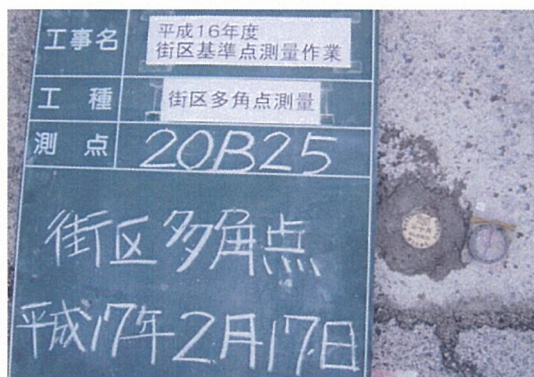 工事名
平成16年度
街区基準点測量作業
工種
街区多角点測量
測点
20B25
街区多角点
平成17年2月17日